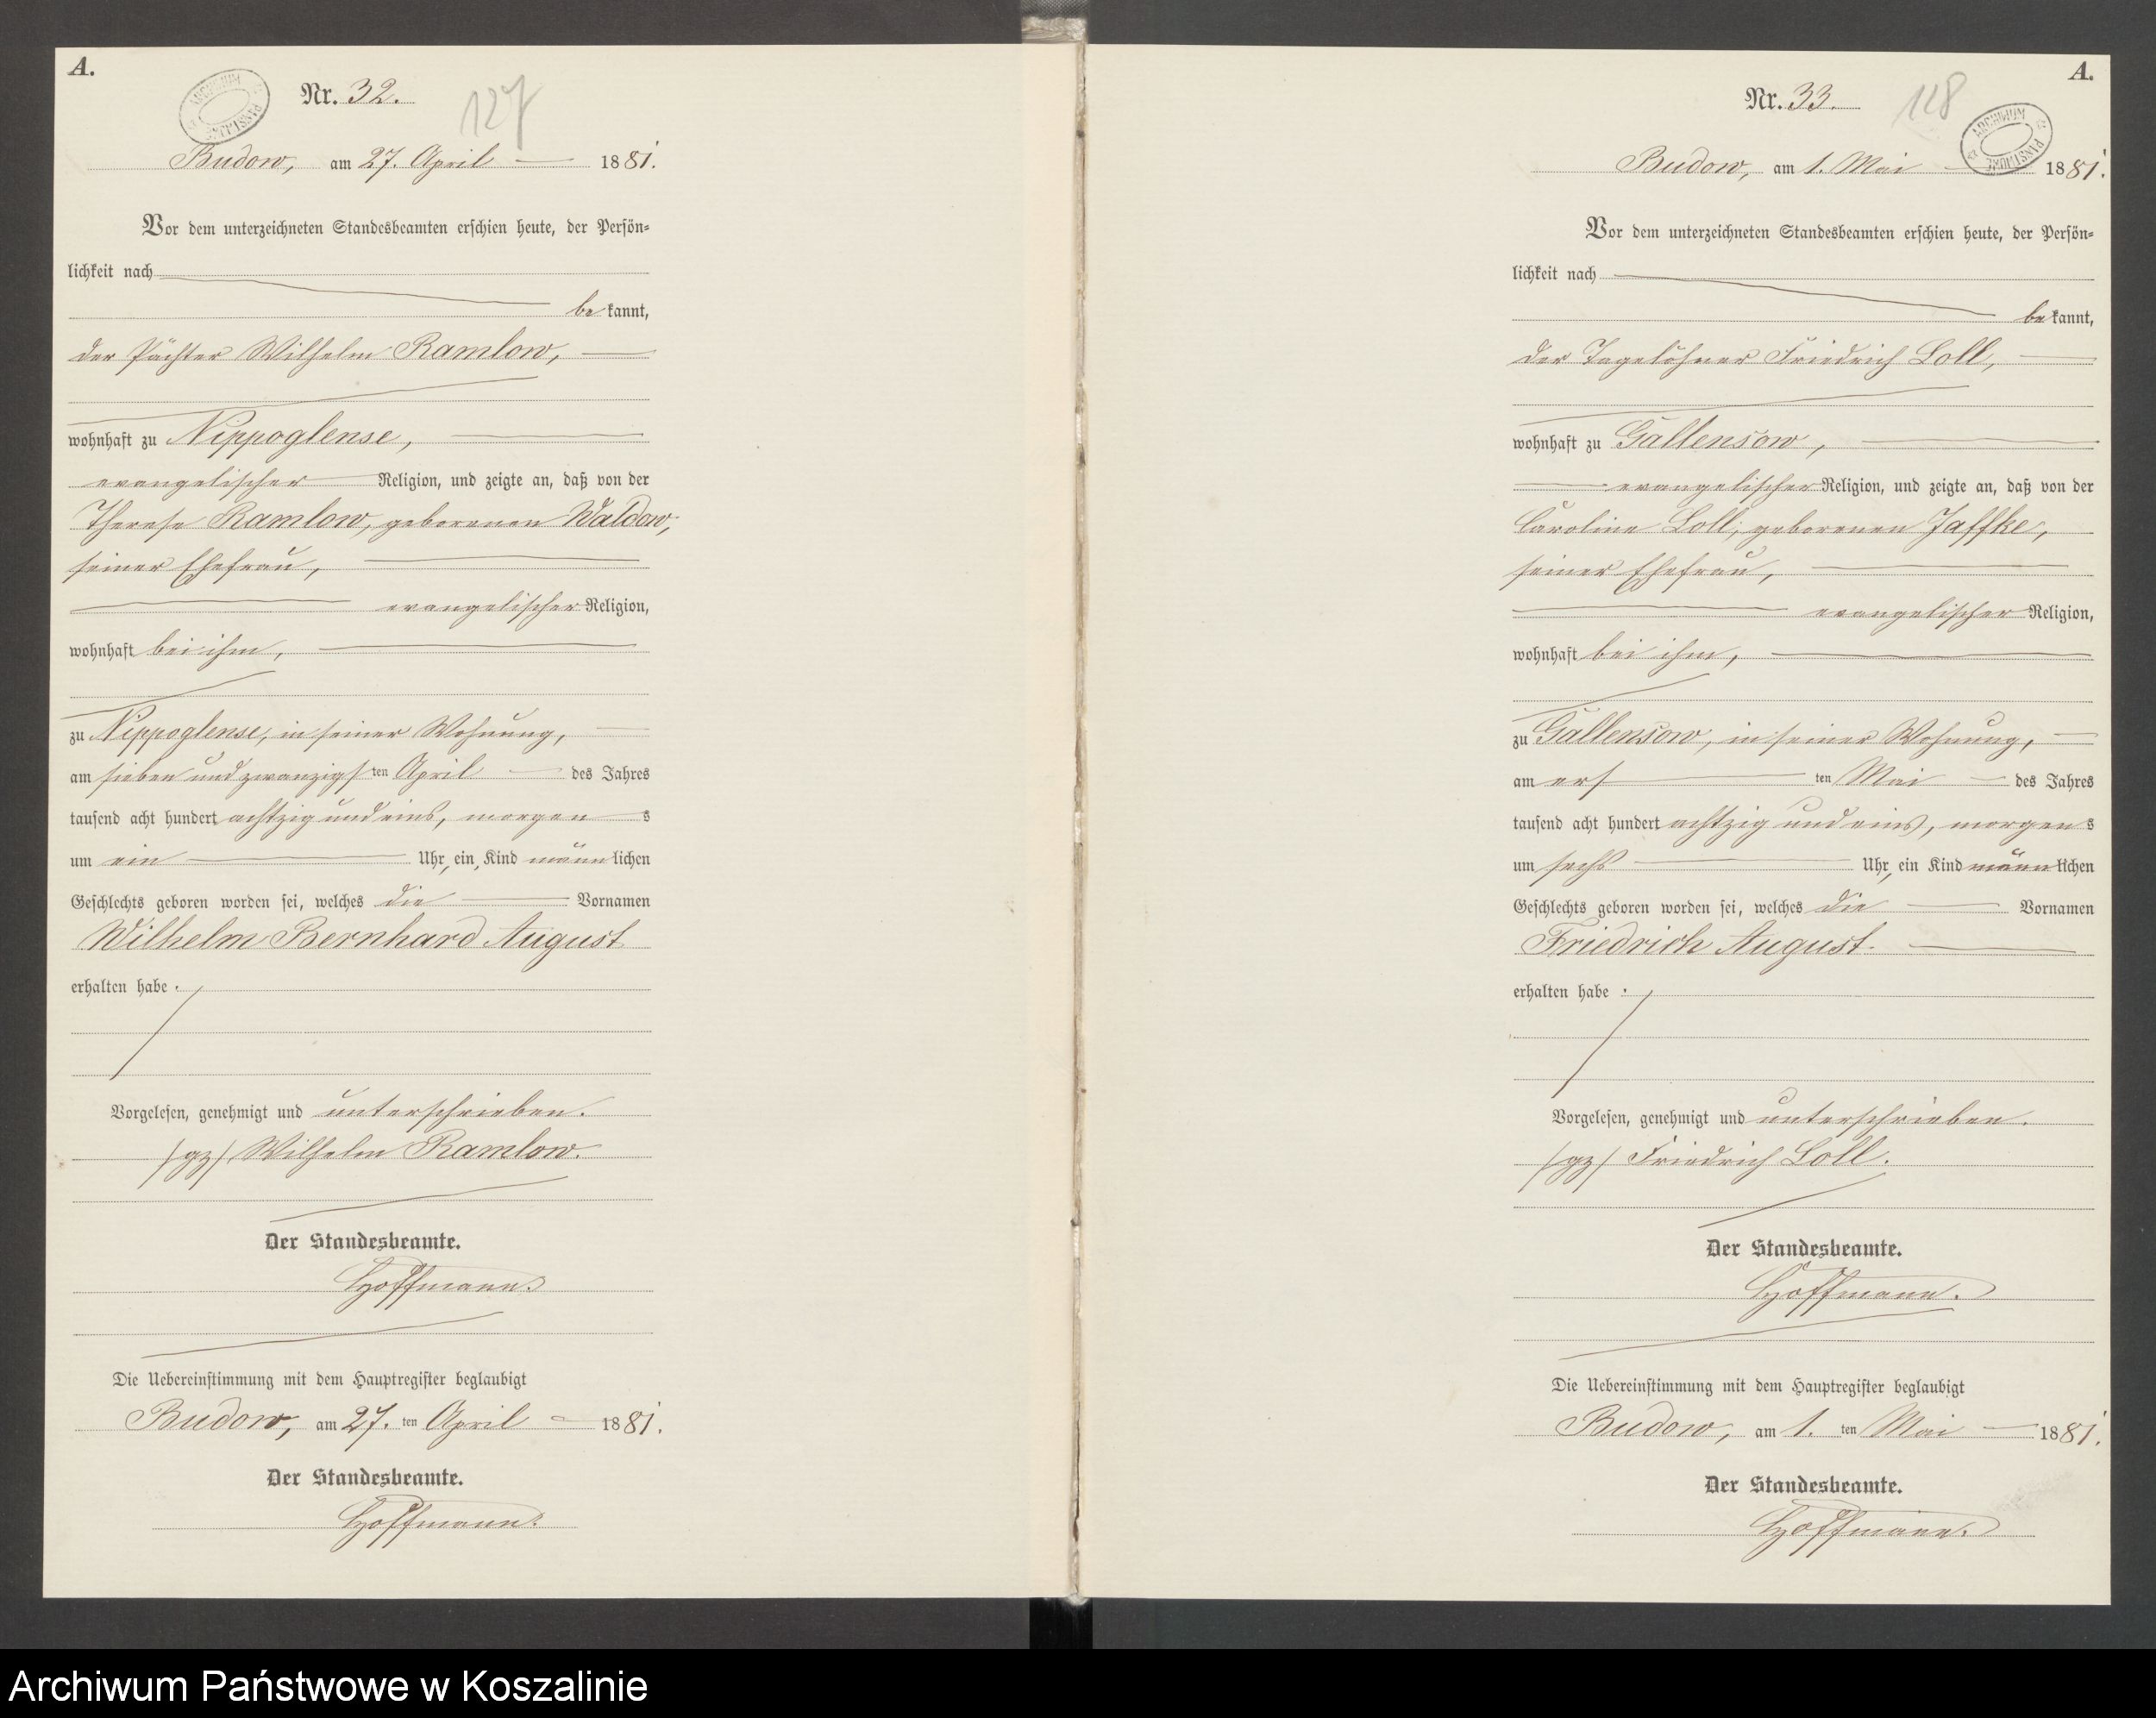 A.
Nr. 32.
127
Budow, am 27. April 1881.
Vor dem unterzeichneten Standesbeamten erschien heute, der Persön-
lichkeit nach
bekannt,
der Pächter Wilhelm Ramlow,
wohnhaft zu Nippoglense,
evangelischer Religion, und zeigte an, daß von der
Therese Ramlow, geborenen Waldow,
seiner Ehefrau,
evangelischer Religion,
wohnhaft bei ihm,
zu Nippoglense, in seiner Wohnung,
am sieben und zwanzigsten April des Jahres
tausend acht hundert achtzig und eins, morgens
um ein Uhr, ein Kind männlichen
Geschlechts geboren worden sei, welches die Vornamen
Wilhelm Bernhard August
erhalten habe.
Vorgelesen, genehmigt und unterschrieben.
/gz/ Wilhelm Ramlow.
Der Standesbeamte.
Hoffmann.
Die Uebereinstimmung mit dem Hauptregister beglaubigt
Budow, am 27. ten April 1881.
Der Standesbeamte.
Hoffmann.
A.
Nr. 33.
128
ARCHIWUM
Budow, am 1. Mai 1881.
Vor dem unterzeichneten Standesbeamten erschien heute, der Persön-
lichkeit nach
bekannt,
der Tagelöhner Friedrich Loll,
wohnhaft zu Gallensow,
evangelischer Religion, und zeigte an, daß von der
Caroline Loll, geborenen Jaffke,
seiner Ehefrau,
evangelischer Religion,
wohnhaft bei ihm,
zu Gallensow, in seiner Wohnung,
am ersten Mai des Jahres
tausend acht hundert achtzig und eins, morgens
um sechs Uhr, ein Kind männlichen
Geschlechts geboren worden sei, welches die Vornamen
Friedrich August
erhalten habe.
Vorgelesen, genehmigt und unterschrieben.
/gz/ Friedrich Loll.
Der Standesbeamte.
Hoffmann.
Die Uebereinstimmung mit dem Hauptregister beglaubigt
Budow, am 1. ten Mai 1881.
Der Standesbeamte.
Hoffmann.
Archiwum Państwowe w Koszalinie